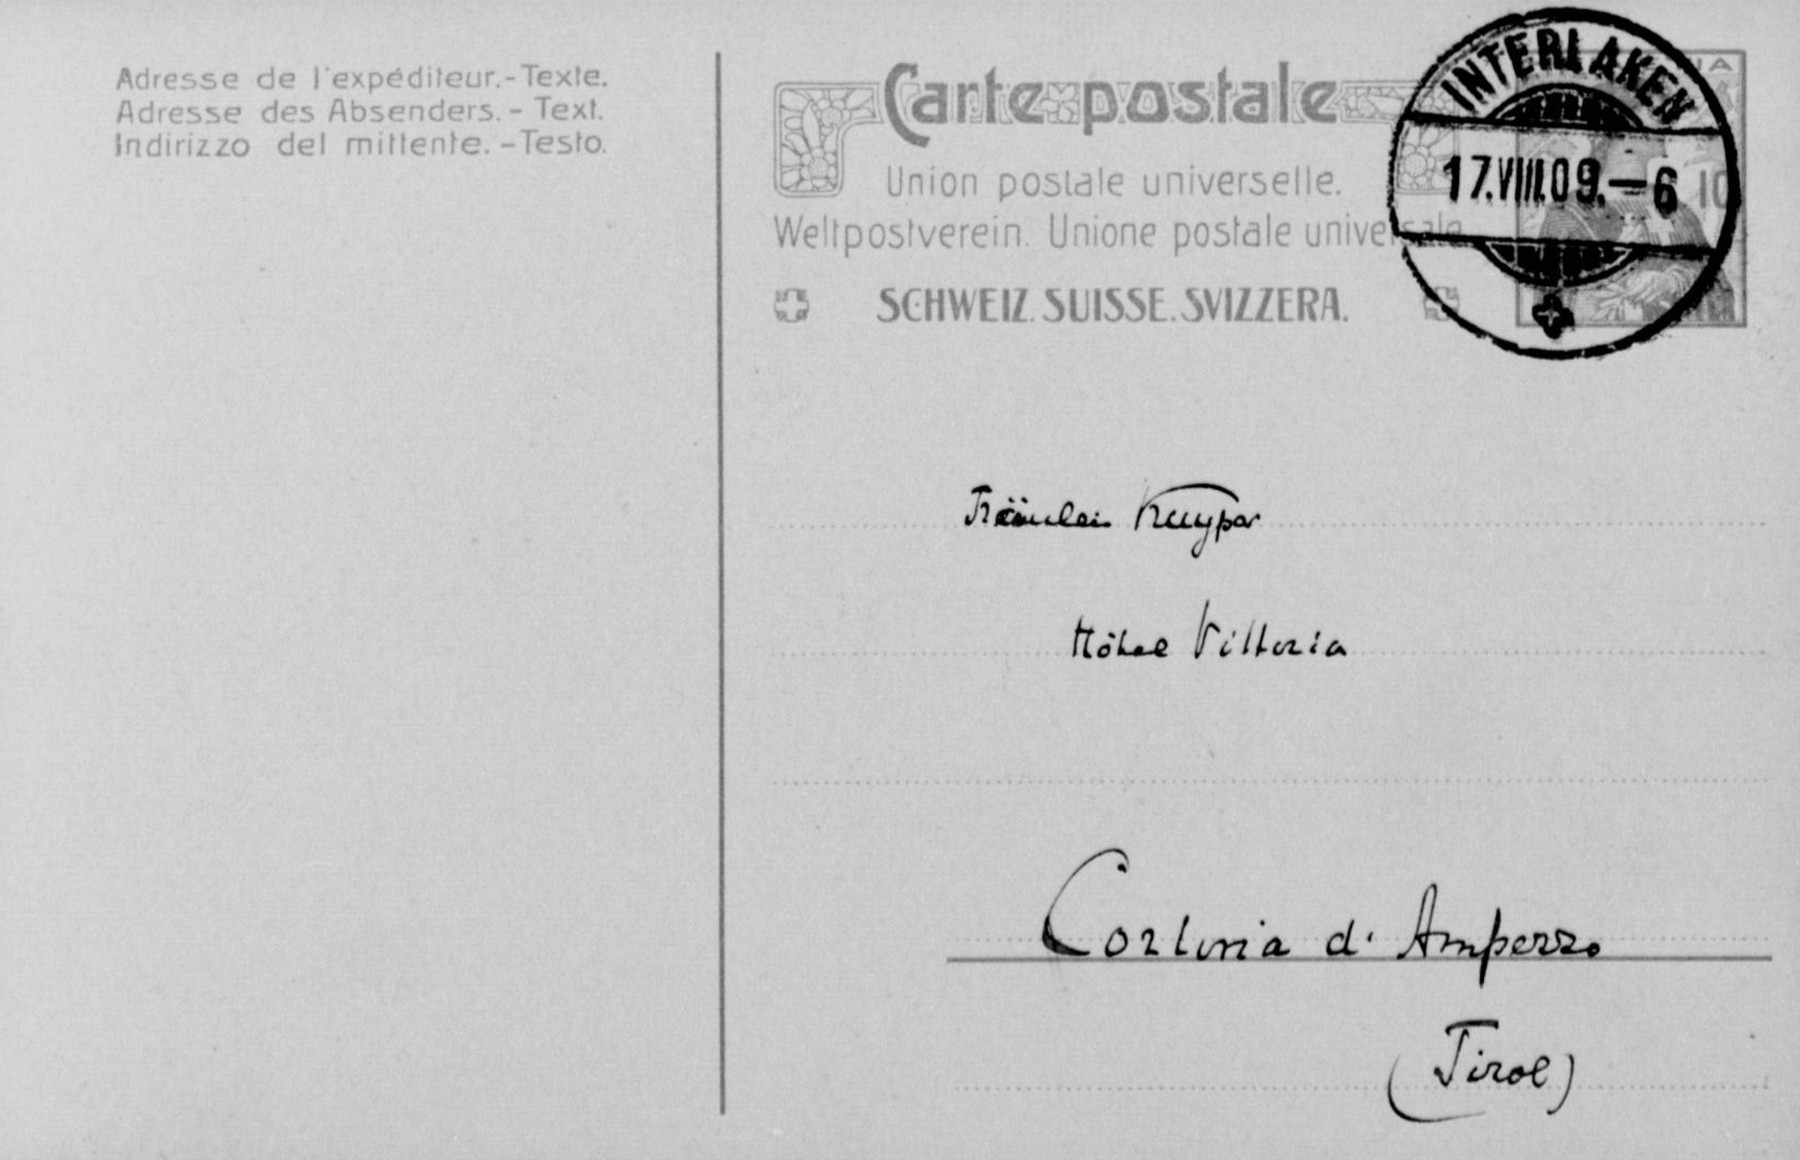 Adresse de l'expéditeur.-Texte.
Adresse des Absenders.- Text.
Indirizzo del mittente.-Testo.
Carte postale
Union postale universelle.
Weltpostverein. Unione postale universale
SCHWEIZ. SUISSE. SVIZZERA.
INTERLAKEN
17.VIII.09.-6
10
Fräulein Kuyper
Hôtel Vittoria
Cortina d'Ampezzo
(Tirol)